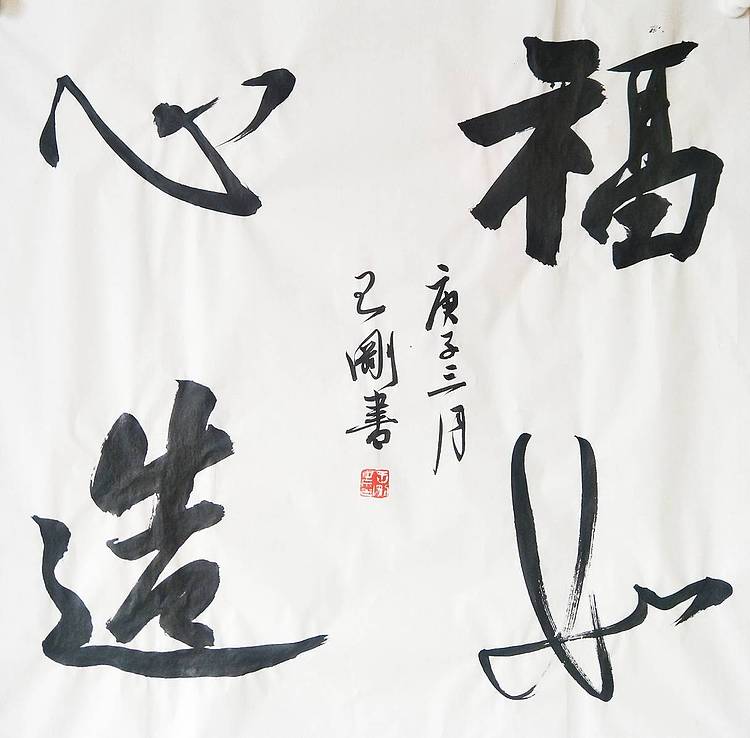 福如
心造
庚子三月
王剛書